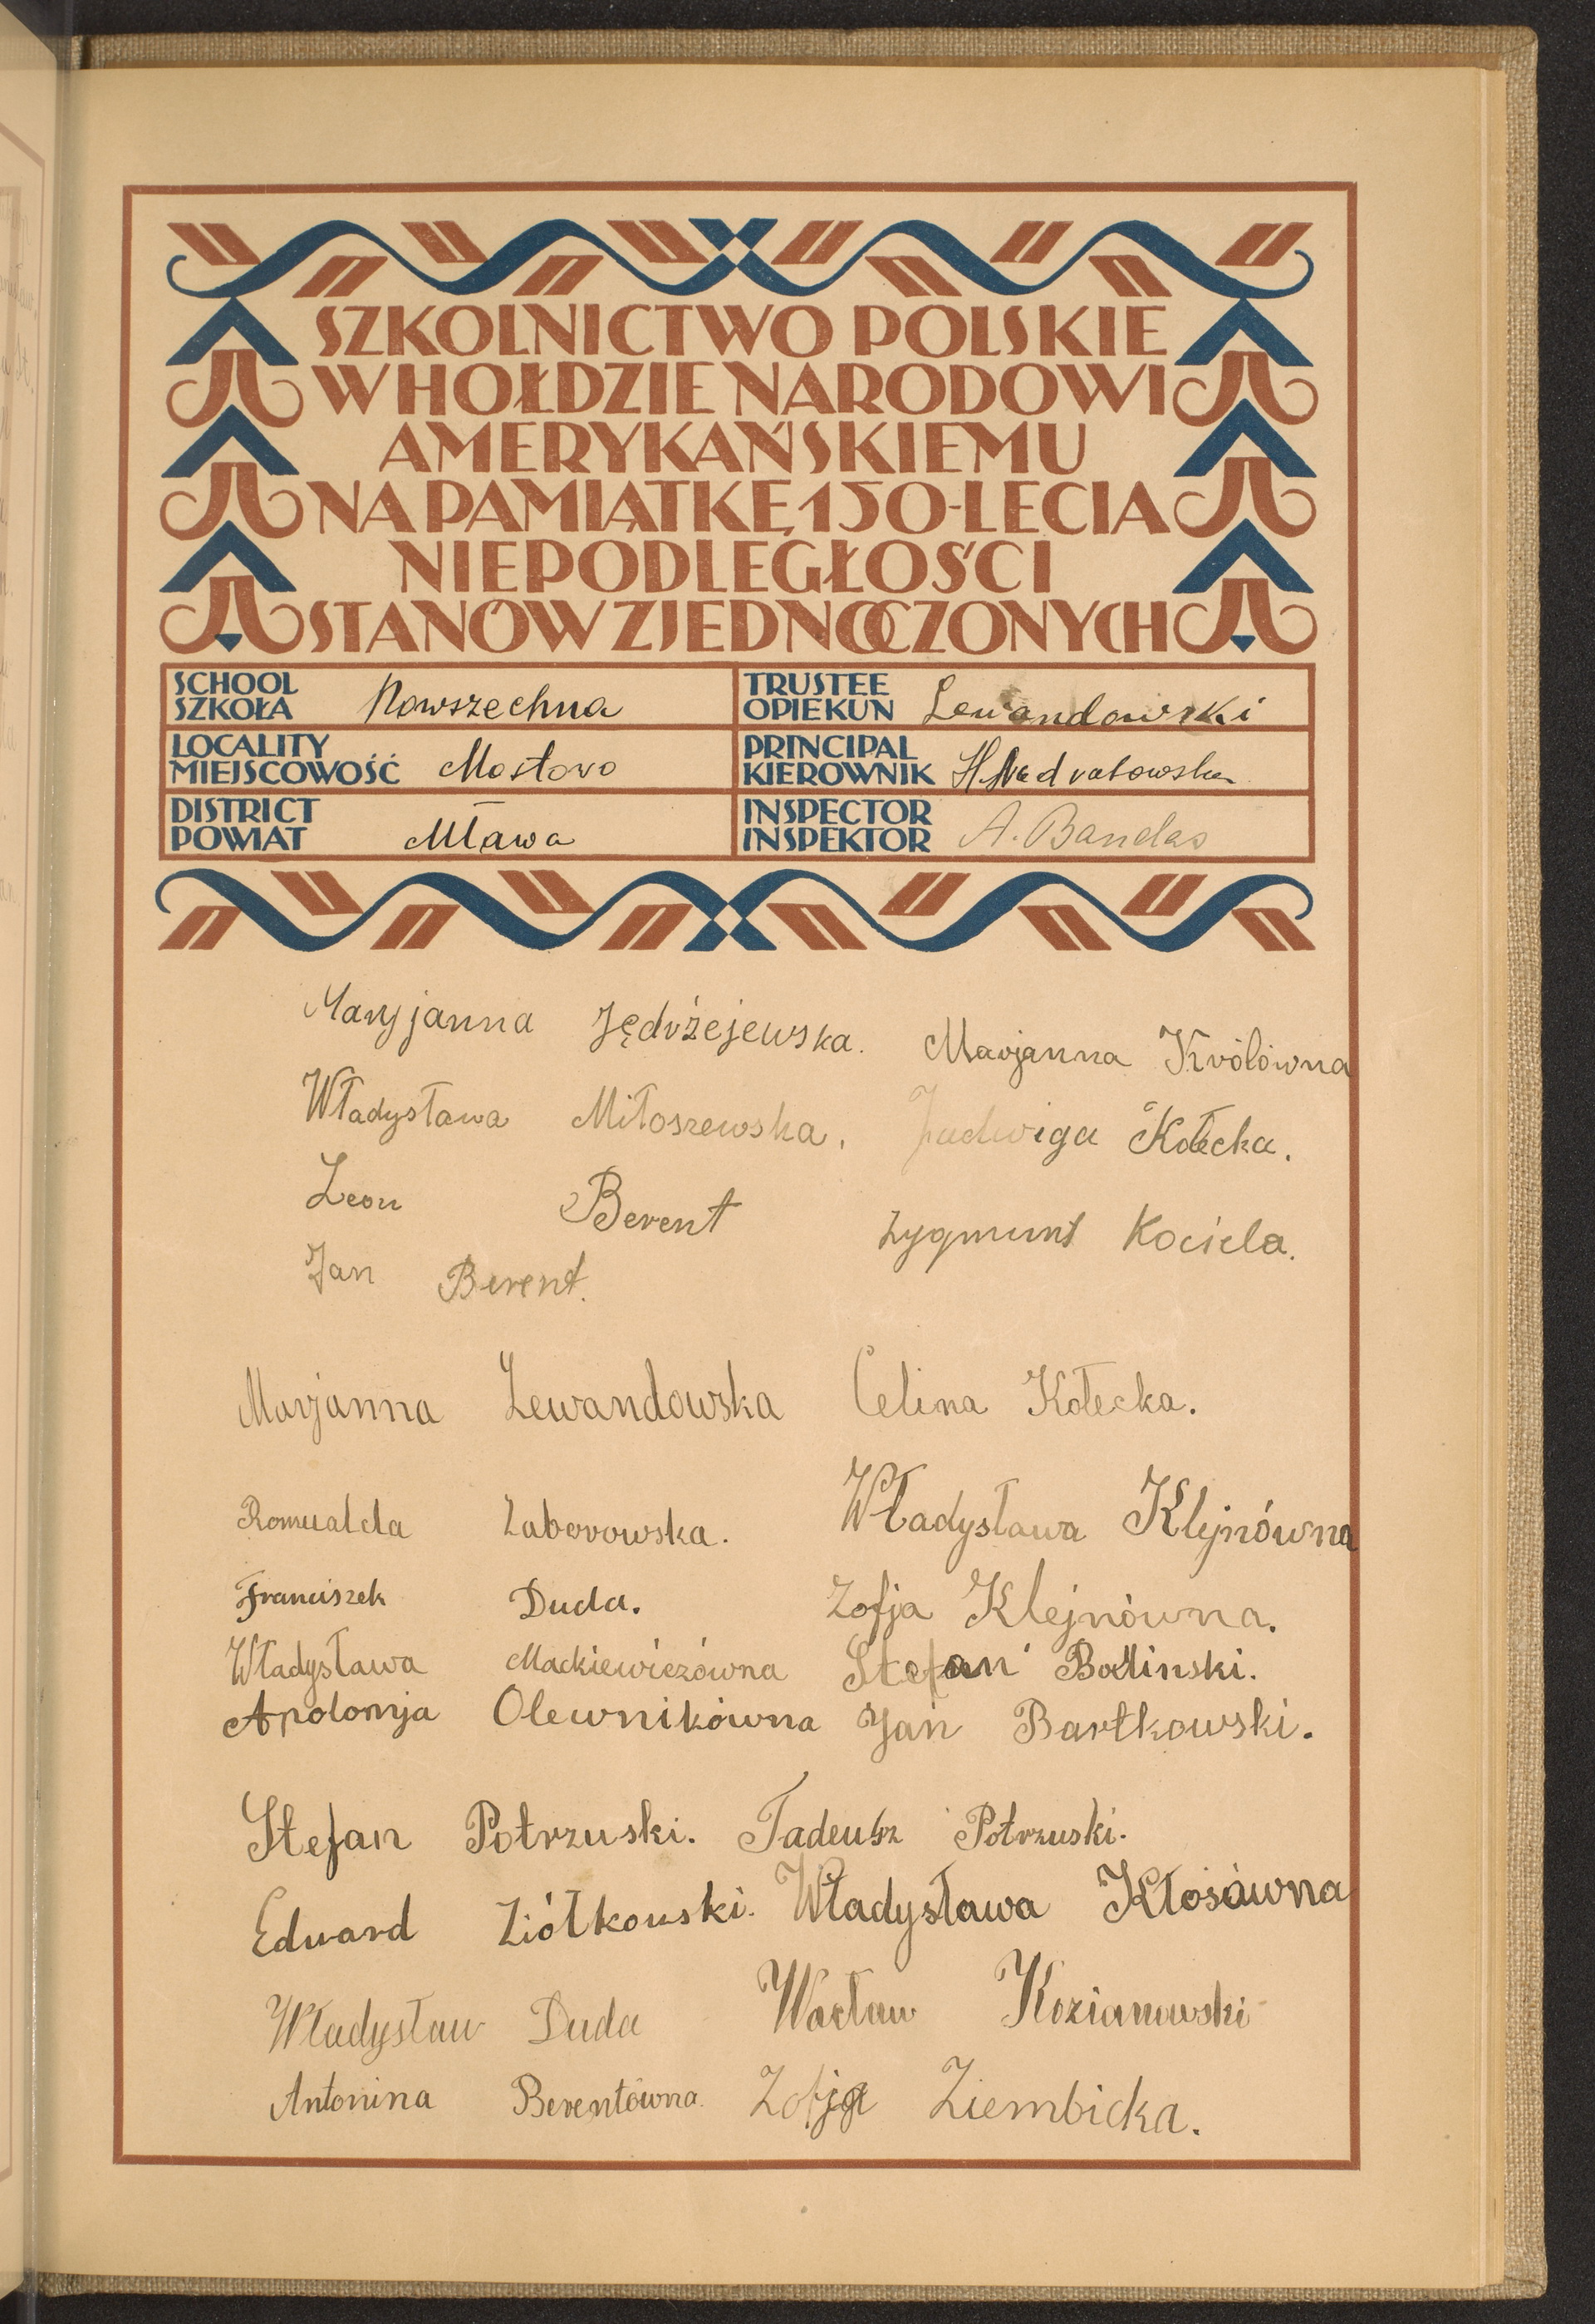 SZKOLNICTWO POLSKIE
W HOŁDZIE NARODOWI
AMERYKAŃSKIEMU
NA PAMIĄTKĘ 150-LECIA
NIEPODLEGŁOŚCI
STANÓW ZJEDNOCZONYCH
SCHOOL
SZKOŁA Powszechna
TRUSTEE
OPIEKUN Lewandowski
LOCALITY
MIEJSCOWOŚĆ Mostowo
PRINCIPAL
KIEROWNIK
DISTRICT
POWIAT Mława
INSPECTOR
INSPEKTOR A. Bandas
Maryjanna Jędrżejewska. Marjanna Królówna
Władysława Miłoszewska. Jadwiga Kołecka.
Leon Berent Zygmunt Kociela.
Jan Berent.
Marjanna Lewandowska Celina Kołecka.
Romualda Zaborowska. Władysława Klejnówna
Franciszek Duda. Zofja Klejnówna.
Władysława Mackiewiczówna Stefan Bodlinski.
Apolonja Olewnikówna Jan Bartkowski.
Stefan Potrzuski. Tadeusz Potrzuski.
Edward Ziółkowski. Władysława Kłosówna
Władysław Duda Wacław Kozianowski
Antonina Berentówna. Zofja Ziembicka.